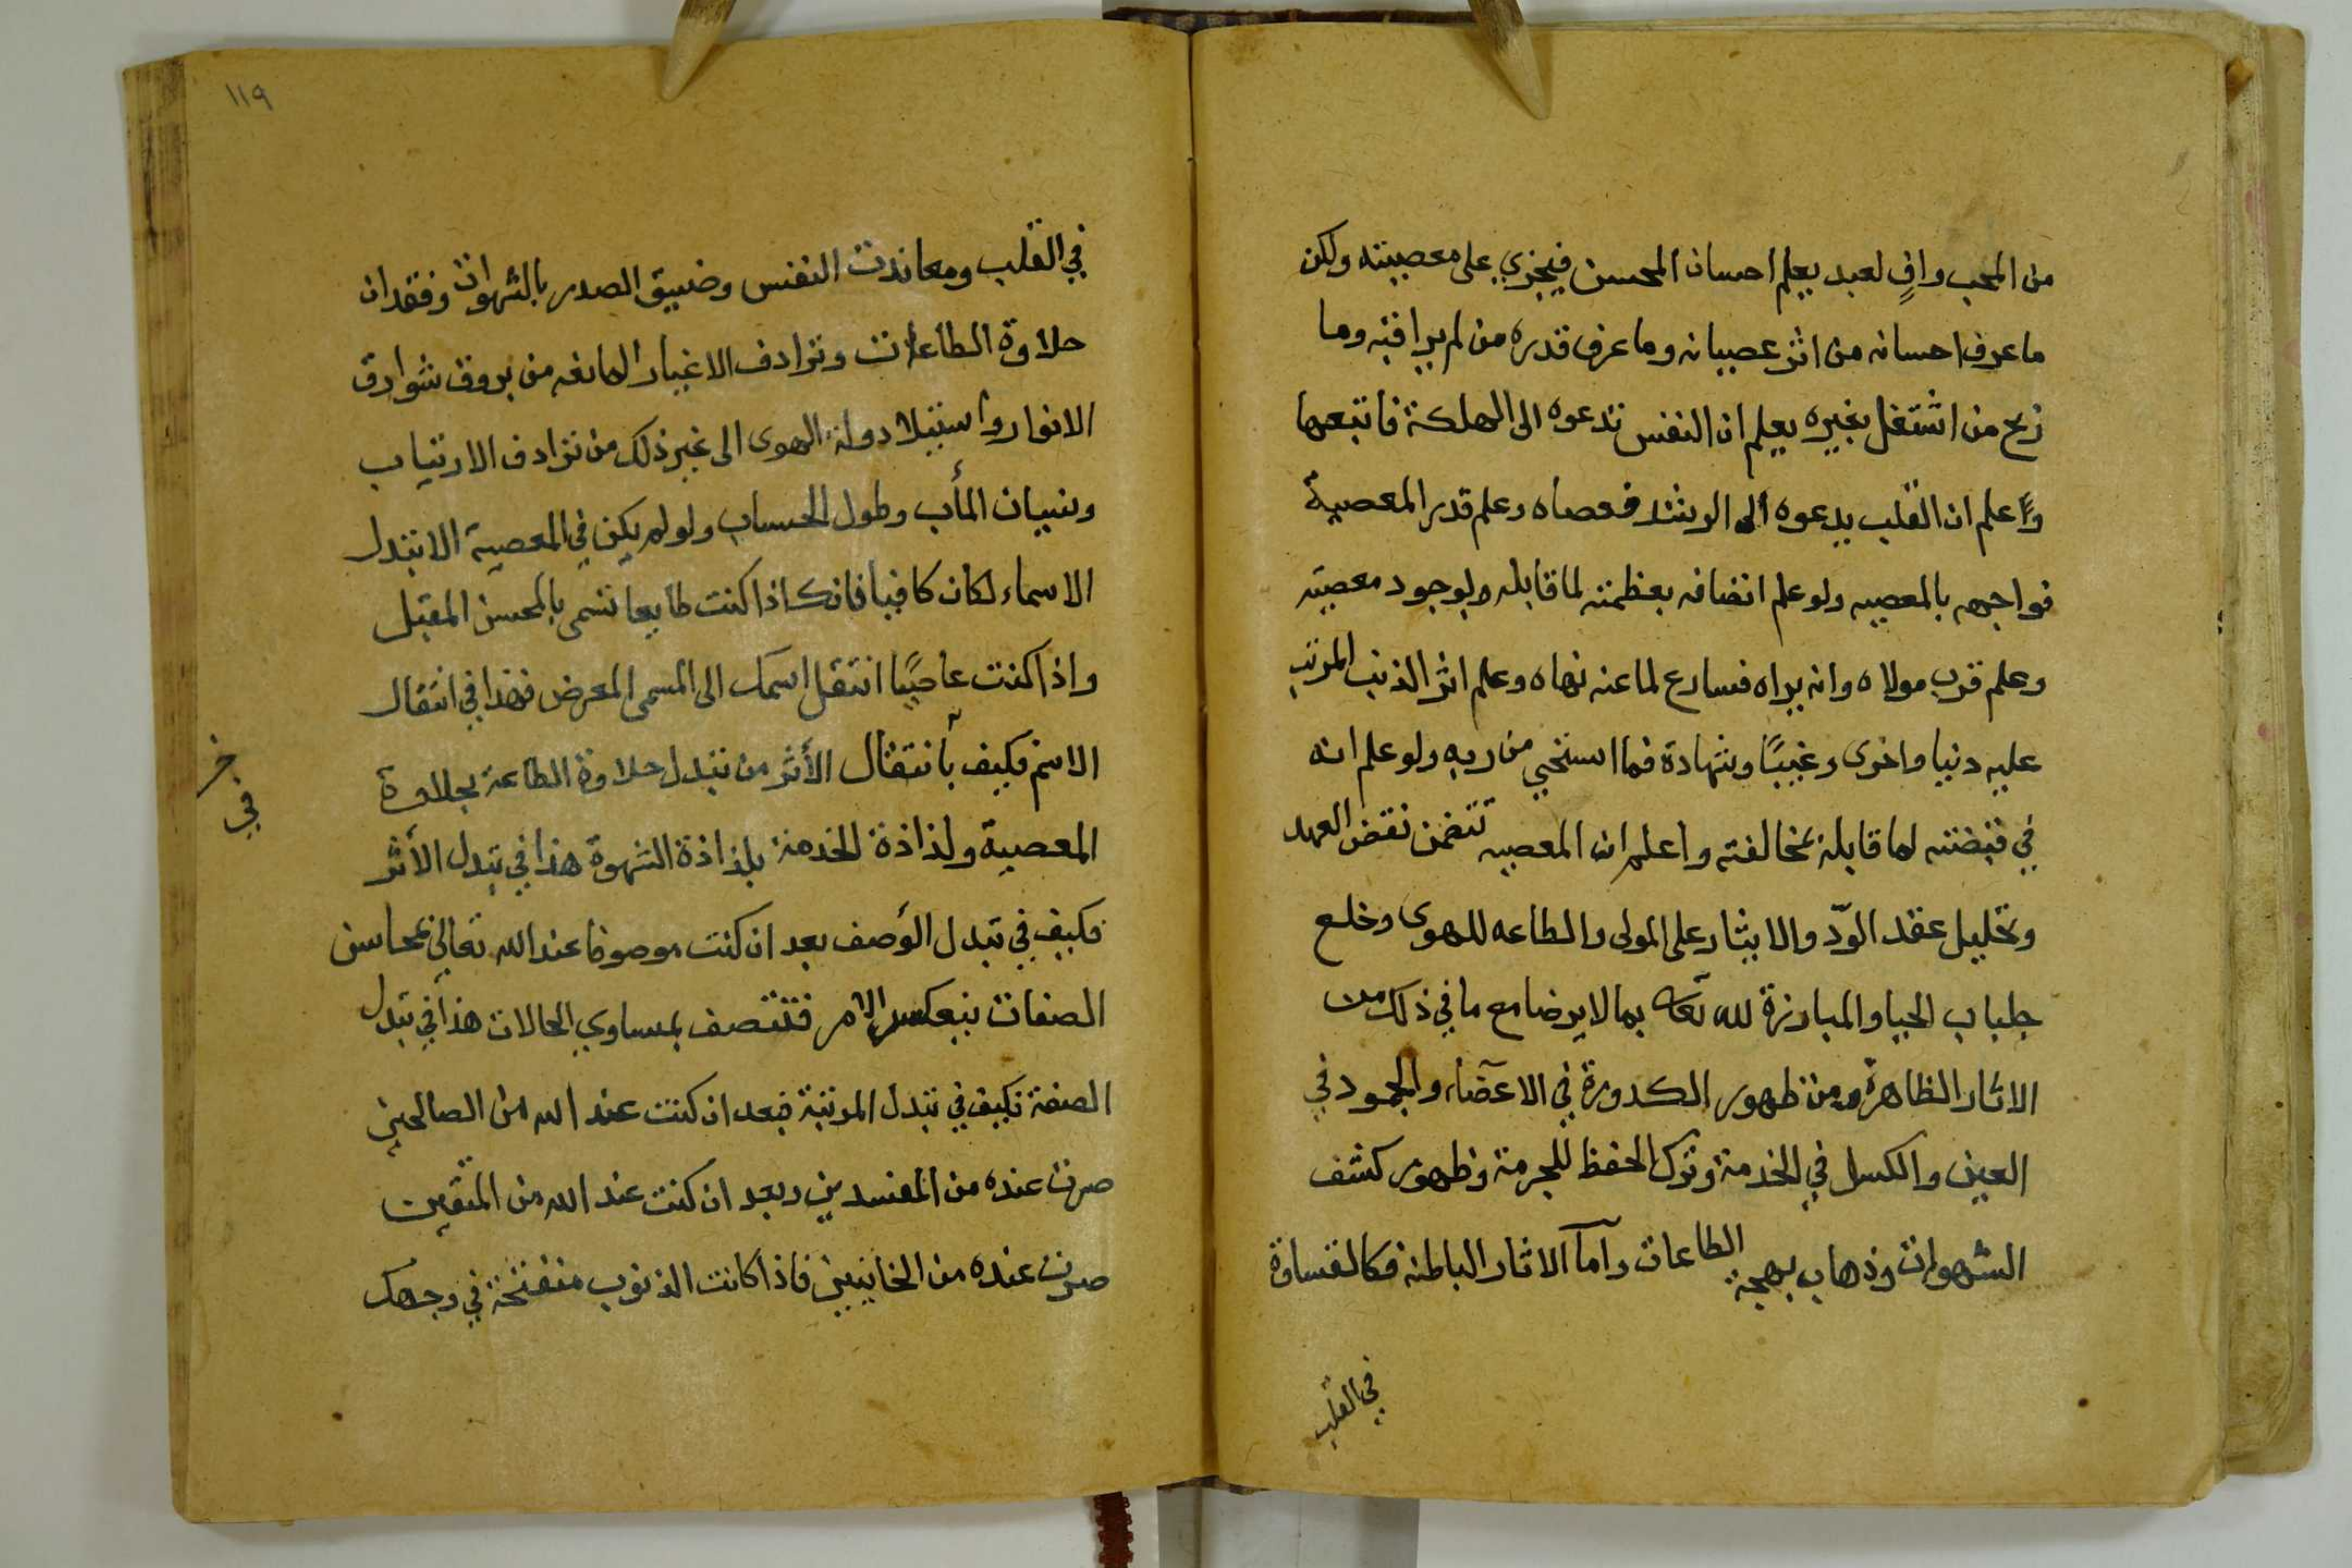 من المحب وافٍ لعبد يعلم احسان المحسن فيجزي على معصيته ولكن
ما عرف احسانه من اثر عصيانه وما عرف قدره من لم يراقبه وما
ربح من اشتغل بغيره يعلم ان النفس تدعوه الى الهلكة فاتبعها
واعلم ان القلب يدعوه الى الرشد فعصاه وعلم قدر المعصية
فواجهه بالمعصيه ولو علم اتصافه بعظمته لما قابله بوجود معصيته
وعلم قرب مولاه وانه يراه فسارع لما عنه نهاه وعلم اثر الذنب المرتب
عليه دنيا واخرى وغيبًا وشهادة فما استحي من ربه ولو علم انه
في قبضته لما قابله بمخالفته واعلم ان المعصيه تتضمن نقض العهد
وتحليل عقد الودّ والايثار على المولى والطاعه للهوى وخلع
جلباب الحيا والمبارزة لله تعا بما لا يرضا مع ما في ذلك من
الاثار الظاهرة من ظهور الكدورة في الاعضاء والجمود في
العين والكسل في الخدمة وترك الحفظ للحرمة وظهور كشف
الشهوات وذهاب بهجة الطاعات واما الاثار الباطنة فكالقساوة
في القلب
١١٩
في القلب ومعاندت النفس وضيق الصدر بالشهوات وفقدان
حلاوة الطاعات وترادف الاغيار المانعه من بروق شوارق
الانوار واستيلا دولة الهوى الى غير ذلك من ترادف الارتياب
ونسيان المأب وطول الحساب ولو لم يكن في المعصية الا تبدل
الاسماء لكان كافيا فانك اذا كنت طايعا تسمى بالمحسن المقبل
واذا كنت عاصيًا انتقل اسمك الى المسمى المعرض فهذا في انتقال
الاسم فكيف بأنتقال الأثر من تبدل حلاوة الطاعة بحلاوة
المعصية ولذاذة الخدمة بلذاذة الشهوة هذا في تبدل الأثر
فكيف في تبدل الوصف بعد ان كنت موصوفا عند الله تعالى بمحاسن
الصفات ينعكس الامر فتتصف بمساوي الحالات هذا في تبدل
الصفة فكيف في تبدل المرتبة فبعد ان كنت عند الله من الصالحين
صرت عنده من المفسدين وبعد ان كنت عند الله من المتقين
صرت عنده من الخاينين فاذا كانت الذنوب منفتحة في وجهك
في